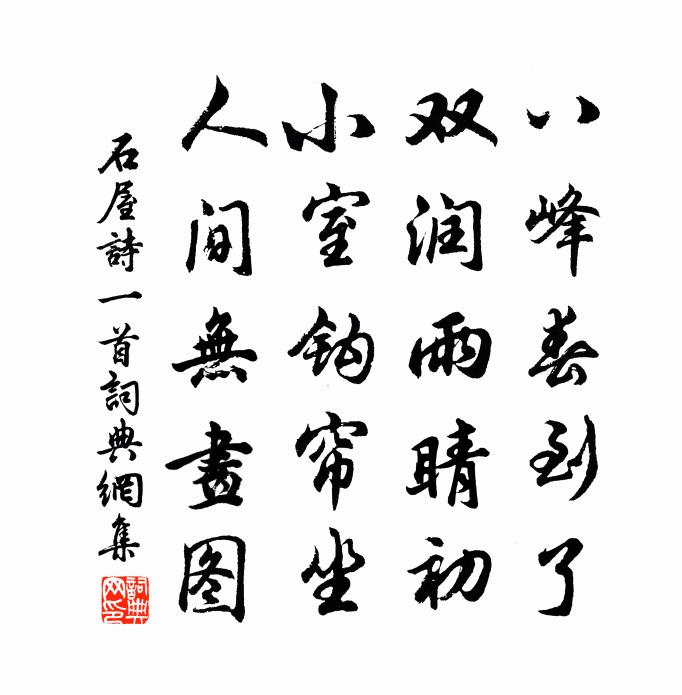 八峰春到了
双润雨晴初
小室钩帘坐
人间無畫图
石屋詩一首詞典網集